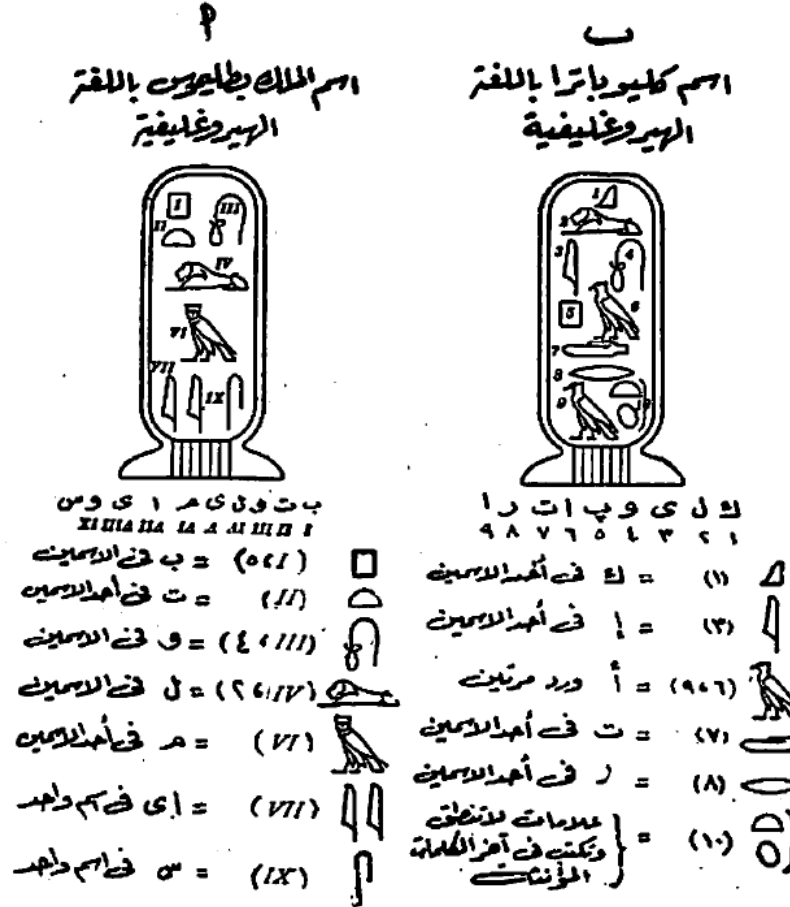 ب
اسم كليوباترا باللغة
الهيروغليفية
1
2
3
4
5
6
7
8
9
ك ل ى و پ ا ت ر ا
١ ٢ ٣ ٤ ٥ ٦ ٧ ٨ ٩
(١) = ك فى أحد الاسمين
(٣) = إ فى أحد الاسمين
(٩،٦) = أ ورد مرتين
(٧) = ت فى أحد الاسمين
(٨) = ر فى أحد الاسمين
(١٠) = علامات لا تنطق
وتكتب فى آخر الكلمات
المؤنثة
اسم الملك بطليموس باللغة
الهيروغليفية
I
II
III
IV
VI
VII
IX
ب ت و ل ى م ا ى و س
(٥،I) = ب فى الاسمين
(II) = ت فى أحد الاسمين
(٤،III) = و فى الاسمين
(٢،IV) = ل فى الاسمين
(VI) = م فى أحد الاسمين
(VII) = إى فى اسم واحد
(IX) = س فى اسم واحد